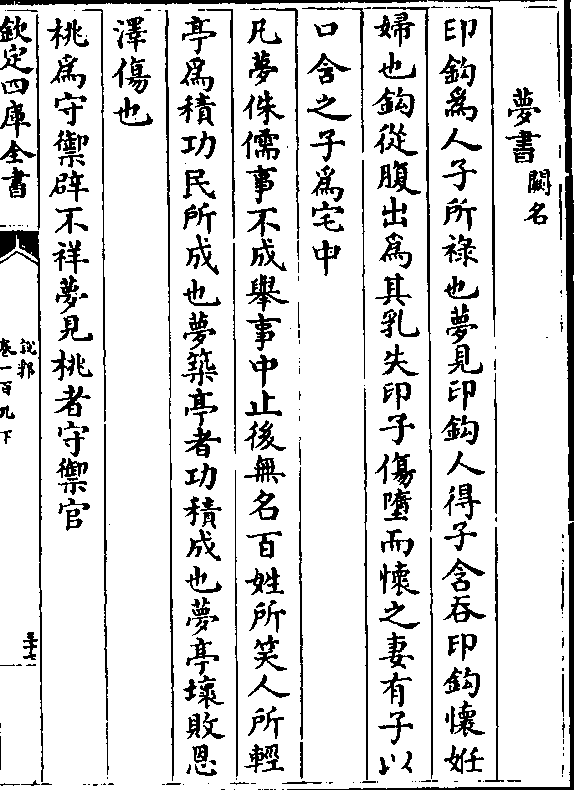 夢書 闕名
印鈎爲人子所祿也夢見印鈎人得子含吞印鈎懷姙
婦也鈎從腹出爲其乳失印子傷墮而懷之妻有子以
口含之子爲宅中
凡夢侏儒事不成舉事中止後無名百姓所笑人所輕
亭爲積功民所成也夢築亭者功積成也夢亭壞敗恩
澤傷也
桃爲守禦辟不祥夢見桃者守禦官
欽定四庫全書
說郛
卷一百九下